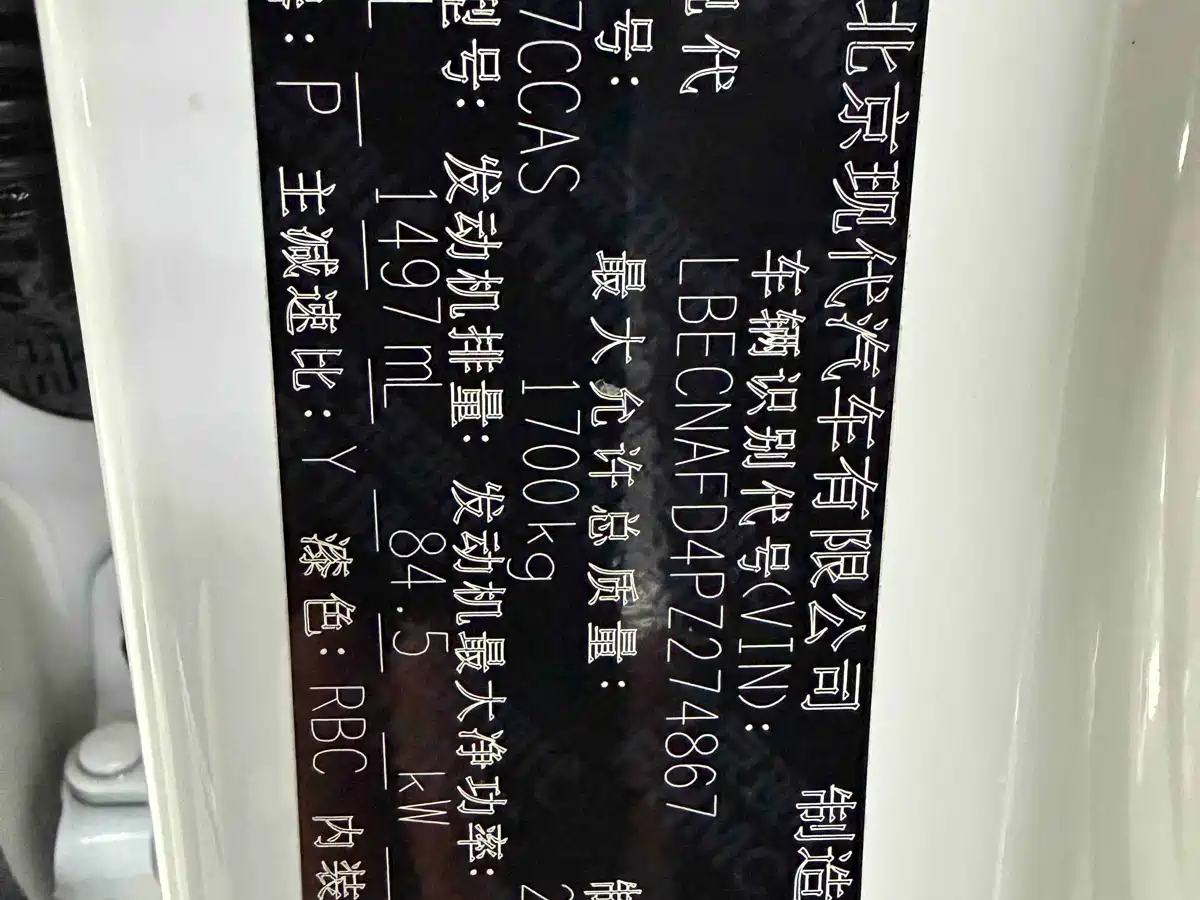 北京现代汽车有限公司 制造
车辆识别代号(VIN):
现代 LBECNAFD4PZ274867
号: 最大允许总质量: 制
7CCAS 1700kg 2
型号: 发动机排量: 发动机最大净功率:
1497mL 84.5 kW
号: P 主减速比: Y 漆色: RBC 内装